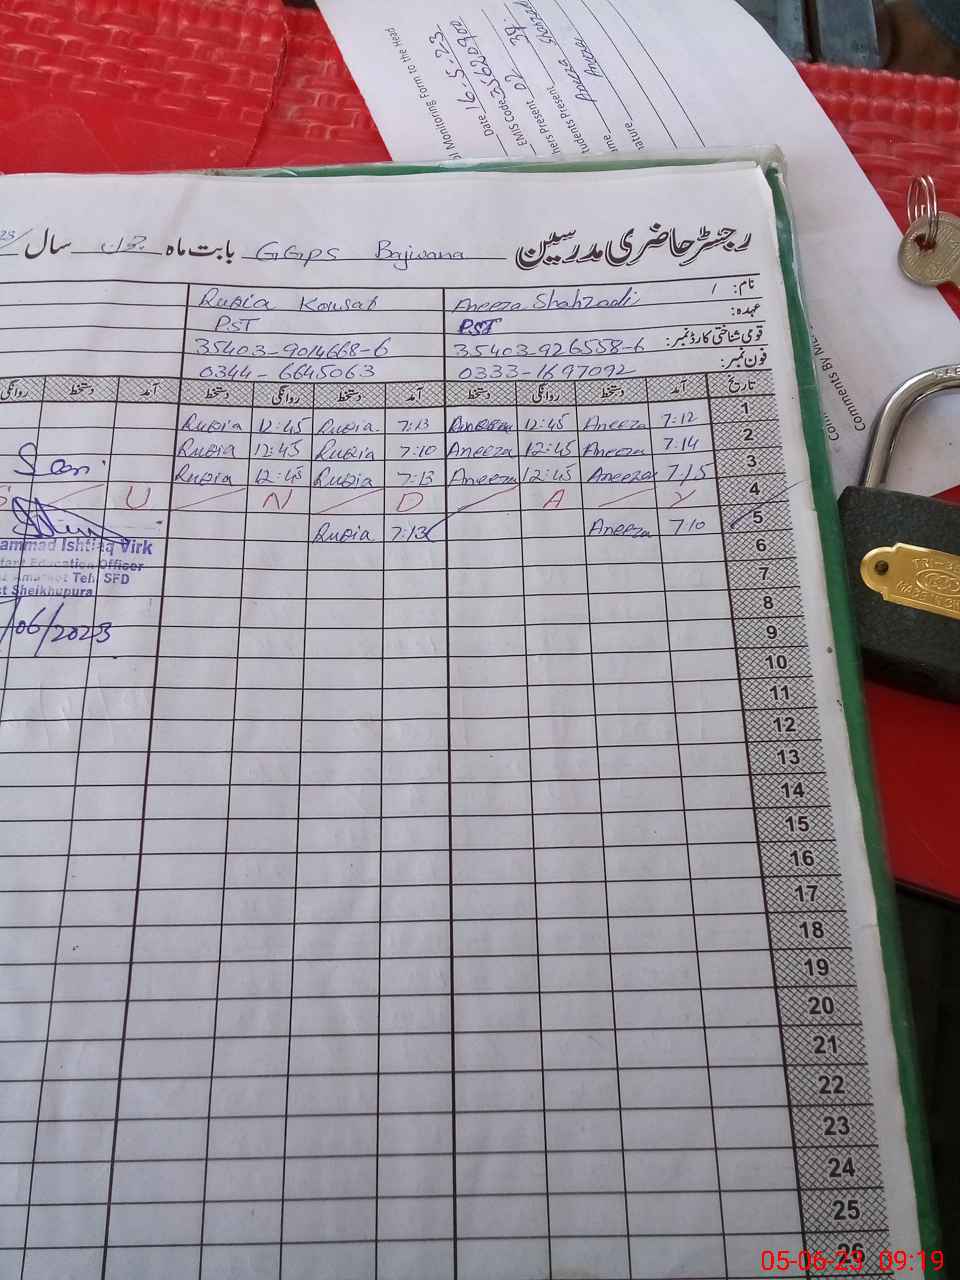 l Monitoring Form to the Head
Date 16-5-23
EMIS Code 35620900
hers Present 02
tudents Present 39
Aneeza Shahzadi
ame
Aneeza
nature
رجسٹر حاضری مدرسین GGPS Bajwana بابت ماہ جون سال 23/
نام: Aneeza Shahzadi Rubia Kousab
عہدہ: PST PST
قومی شناختی کارڈ نمبر: 35403-926558-6 35403-9014668-6
فون نمبر: 0333-1697092 0344-6645063
تاریخ آمد دستخط روانگی دستخط آمد دستخط روانگی دستخط آمد دستخط روانگی
1 7:12 Aneeza 12:45 Aneeza 7:13 Rubia 12:45 Rubia
2 7:14 Aneeza 12:45 Aneeza 7:10 Rubia 12:45 Rubia
3 7:15 Aneeza 12:45 Aneeza 7:13 Rubia 12:45 Rubia
4 S U N D A Y
5 7:10 Aneeza 7:13 Rubia
Seen
ammad Ishtiaq Virk
tant Education Officer
Teh. SFD
st Sheikhupura
/06/2023
6
7
8
9
10
11
12
13
14
15
16
17
18
19
20
21
22
23
24
25
26
Comments By
TRI-
MADE IN
05-06-23 09:19